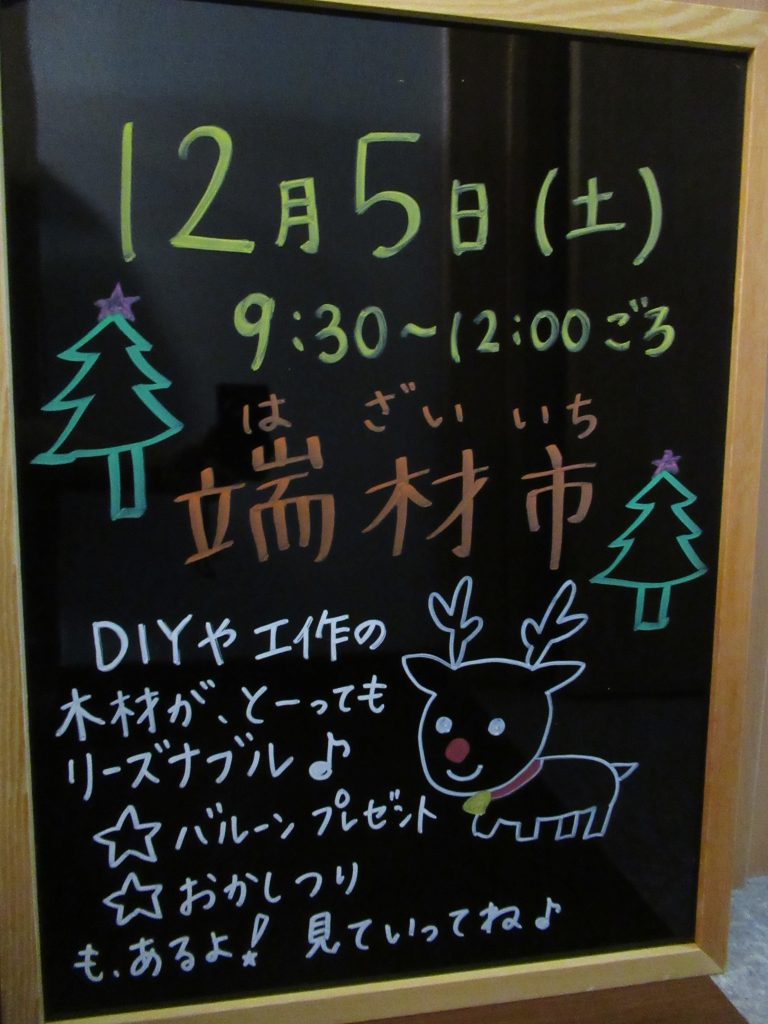 12月5日(土)
9:30～12:00ごろ
はざいいち
端材市
DIYや工作の
木材が、とーっても
リーズナブル♪
☆バルーンプレゼント
☆おかしつり
も、あるよ!見ていってね♪